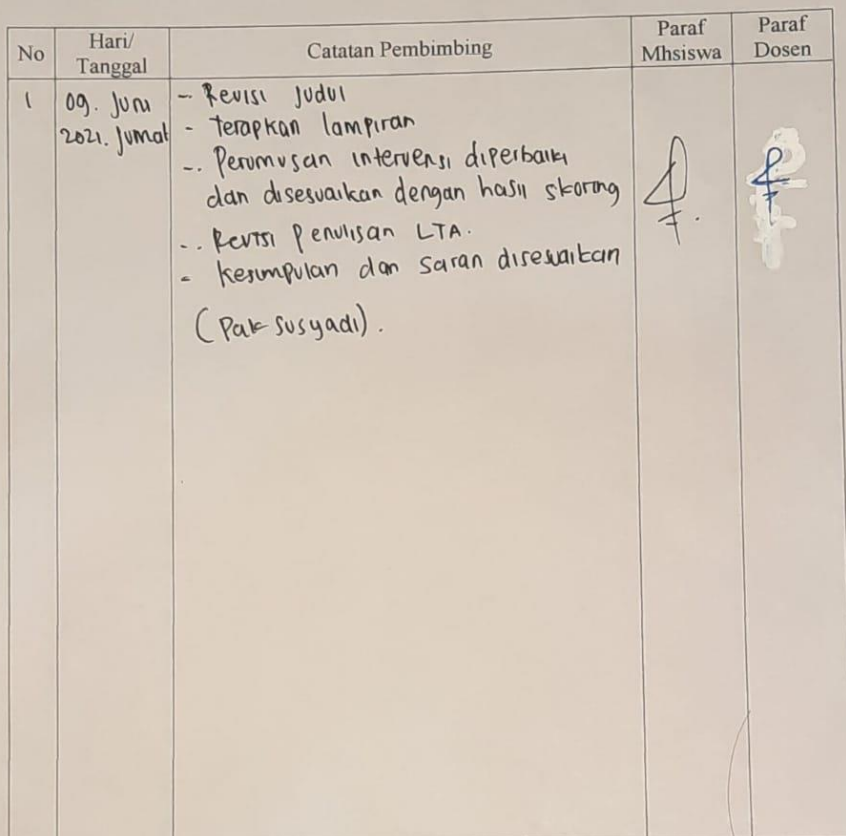 No
Hari/
Tanggal
Catatan Pembimbing
Paraf
Mhsiswa
Paraf
Dosen
1
09. Juni
2021. Jumat
- Revisi Judul
- terapkan lampiran
- Perumusan intervensi diperbaiki
dan disesuaikan dengan hasil skoring
- Revisi Penulisan LTA.
- kesimpulan dan saran disesuaikan
(Pak Susyadi).